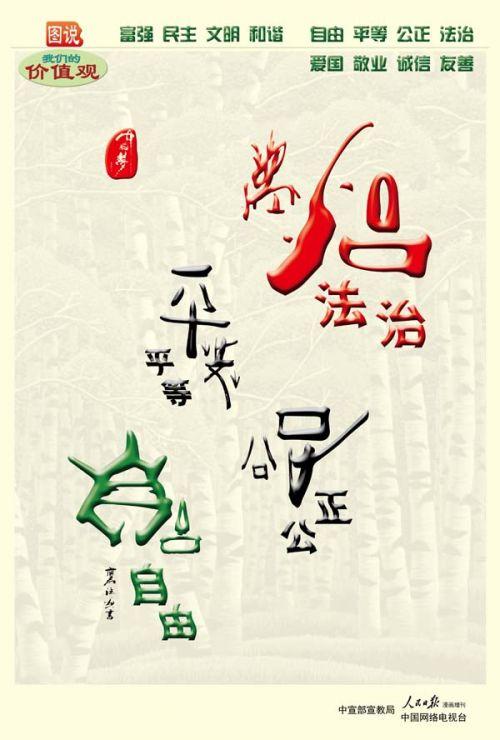 图说
我们的
价值观
富强 民主 文明 和谐 自由 平等 公正 法治
爱国 敬业 诚信 友善
中国梦
法治
平等
公正
自由
中宣部宣教局
人民日报 漫画增刊
中国网络电视台